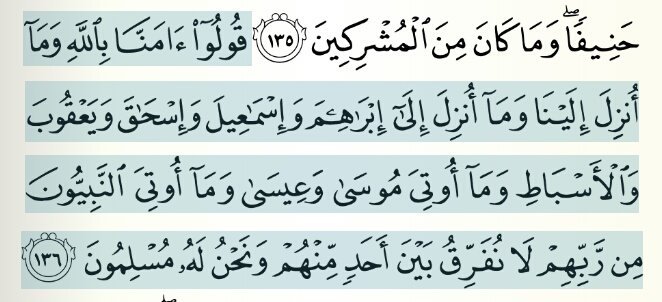 حَنِيفًاۖ وَمَا كَانَ مِنَ ٱلْمُشْرِكِينَ ١٣٥ قُولُوٓا۟ ءَامَنَّا بِٱللَّهِ وَمَآ
أُنزِلَ إِلَيْنَا وَمَآ أُنزِلَ إِلَىٰٓ إِبْرَٰهِـۧمَ وَإِسْمَـٰعِيلَ وَإِسْحَـٰقَ وَيَعْقُوبَ
وَٱلْأَسْبَاطِ وَمَآ أُوتِىَ مُوسَىٰ وَعِيسَىٰ وَمَآ أُوتِىَ ٱلنَّبِيُّونَ
مِن رَّبِّهِمْ لَا نُفَرِّقُ بَيْنَ أَحَدٍ مِّنْهُمْ وَنَحْنُ لَهُۥ مُسْلِمُونَ ١٣٦